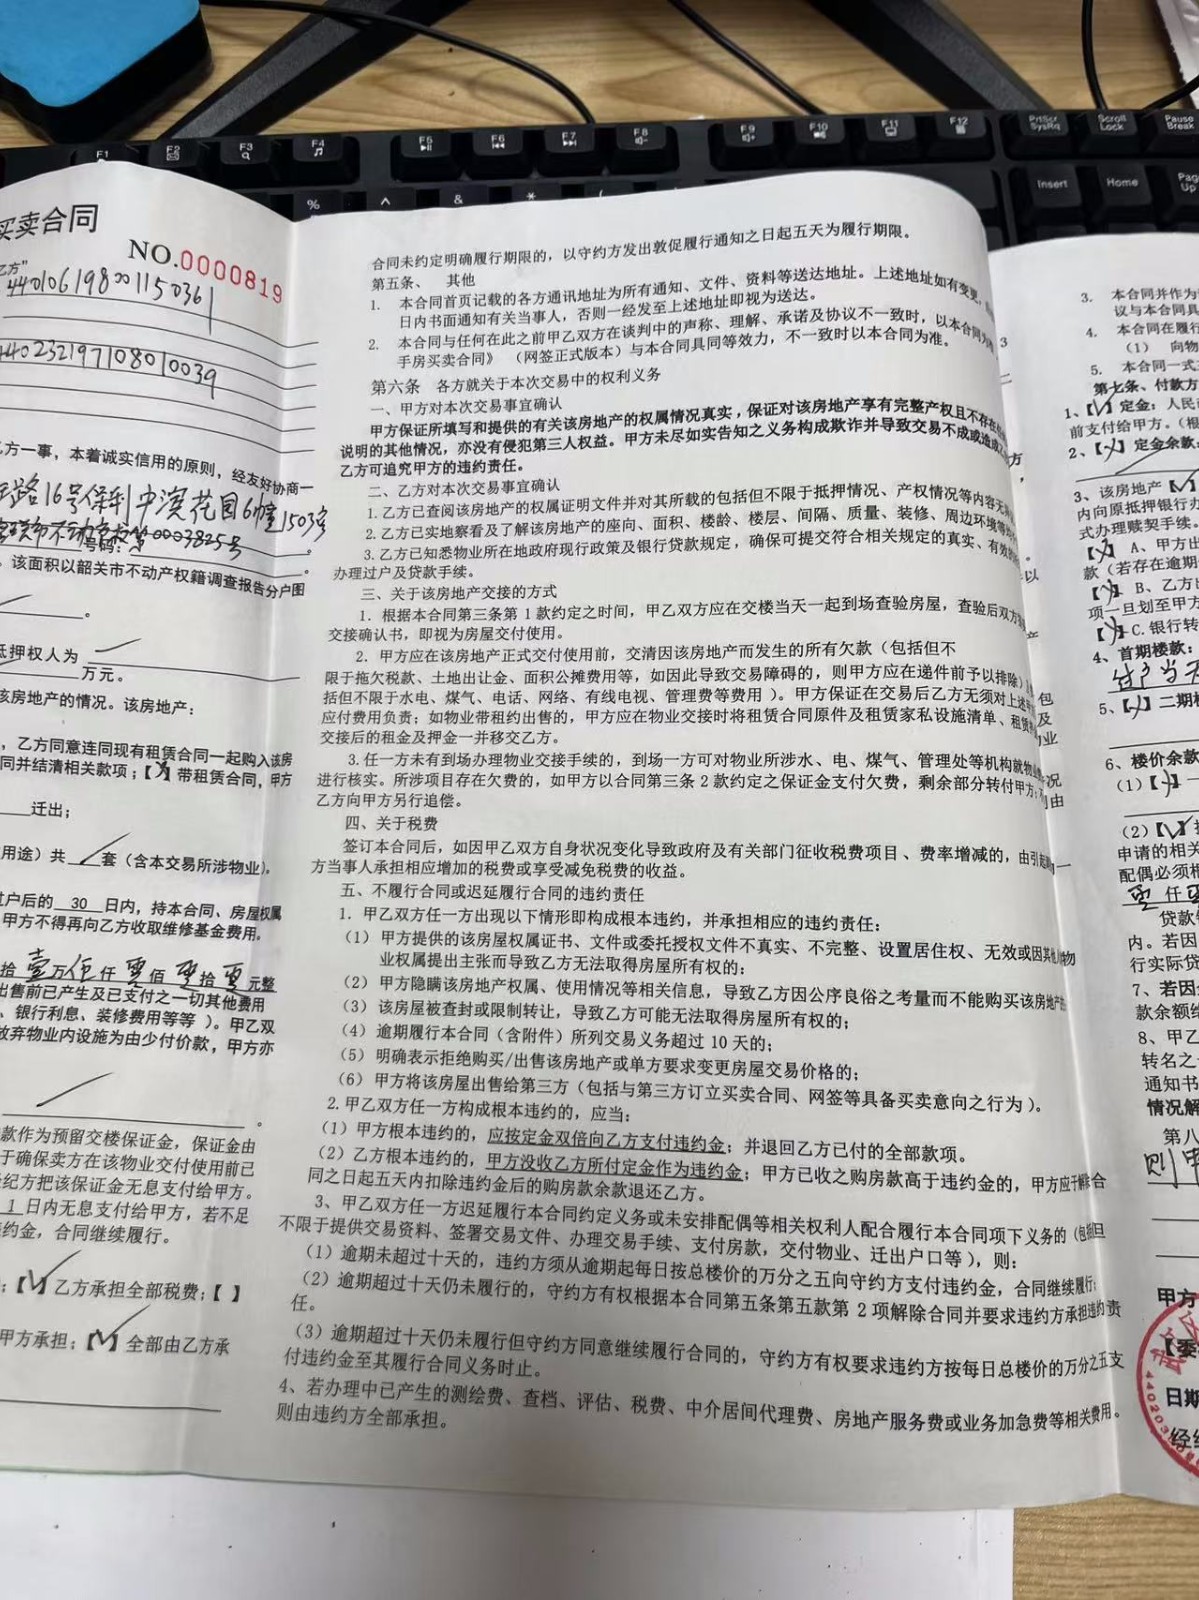 买卖合同
NO.0000819
乙方"
440106198001150361
440232197108010039
乙方一事，本着诚实信用的原则，经友好协商一
路16号保利中滨花园6幢1503房
号码：第0003825号
。该面积以韶关市不动产权籍调查报告分户图
抵押权人为
万元。
该房地产的情况。该房地产：
，乙方同意连同现有租赁合同一起购入该房
同并结清相关款项；【】带租赁合同，甲方
迁出；
用途）共 套（含本交易所涉物业）。
过户后的 30 日内，持本合同、房屋权属
甲方不得再向乙方收取维修基金费用。
拾壹万伍仟零佰零拾零元整
出售前已产生及已支付之一切其他费用
、银行利息、装修费用等等）。甲乙双
放弃物业内设施为由少付价款，甲方亦
。
款作为预留交楼保证金，保证金由
于确保卖方在该物业交付使用前已
纪方把该保证金无息支付给甲方。
1 日内无息支付给甲方，若不足
约金，合同继续履行。
；【√】乙方承担全部税费；【 】
甲方承担；【√】全部由乙方承
合同未约定明确履行期限的，以守约方发出敦促履行通知之日起五天为履行期限。
第五条、 其他
1. 本合同首页记载的各方通讯地址为所有通知、文件、资料等送达地址。上述地址如有变更，
日内书面通知有关当事人，否则一经发至上述地址即视为送达。
2. 本合同与任何在此之前甲乙双方在谈判中的声称、理解、承诺及协议不一致时，以本合同为
手房买卖合同》（网签正式版本）与本合同具同等效力，不一致时以本合同为准。
第六条 各方就关于本次交易中的权利义务
一、甲方对本次交易事宜确认
甲方保证所填写和提供的有关该房地产的权属情况真实，保证对该房地产享有完整产权且不存在
说明的其他情况，亦没有侵犯第三人权益。甲方未尽如实告知之义务构成欺诈并导致交易不成或造成乙方
乙方可追究甲方的违约责任。
二、乙方对本次交易事宜确认
1.乙方已查阅该房地产的权属证明文件并对其所载的包括但不限于抵押情况、产权情况等内容无
2.乙方已实地察看及了解该房地产的座向、面积、楼龄、楼层、间隔、质量、装修、周边环境等
3.乙方已知悉物业所在地政府现行政策及银行贷款规定，确保可提交符合相关规定的真实、有效的
办理过户及贷款手续。
三、关于该房地产交接的方式
1. 根据本合同第三条第 1 款约定之时间，甲乙双方应在交楼当天一起到场查验房屋，查验后双方
交接确认书，即视为房屋交付使用。
2. 甲方应在该房地产正式交付使用前，交清因该房地产而发生的所有欠款（包括但不
限于拖欠税款、土地出让金、面积公摊费用等，如因此导致交易障碍的，则甲方应在递件前予以排除）
括但不限于水电、煤气、电话、网络、有线电视、管理费等费用）。甲方保证在交易后乙方无须对上述
应付费用负责；如物业带租约出售的，甲方应在物业交接时将租赁合同原件及租赁家私设施清单、租赁
交接后的租金及押金一并移交乙方。
3.任一方未有到场办理物业交接手续的，到场一方可对物业所涉水、电、煤气、管理处等机构就物业
进行核实。所涉项目存在欠费的，如甲方以合同第三条 2 款约定之保证金支付欠费，剩余部分转付甲方；
乙方向甲方另行追偿。
四、关于税费
签订本合同后，如因甲乙双方自身状况变化导致政府及有关部门征收税费项目、费率增减的，由引起
方当事人承担相应增加的税费或享受减免税费的收益。
五、不履行合同或迟延履行合同的违约责任
1. 甲乙双方任一方出现以下情形即构成根本违约，并承担相应的违约责任：
（1） 甲方提供的该房屋权属证书、文件或委托授权文件不真实、不完整、设置居住权、无效或因其他人物
业权属提出主张而导致乙方无法取得房屋所有权的；
（2） 甲方隐瞒该房地产权属、使用情况等相关信息，导致乙方因公序良俗之考量而不能购买该房地产
（3） 该房屋被查封或限制转让，导致乙方可能无法取得房屋所有权的；
（4） 逾期履行本合同（含附件）所列交易义务超过 10 天的；
（5） 明确表示拒绝购买/出售该房地产或单方要求变更房屋交易价格的；
（6） 甲方将该房屋出售给第三方（包括与第三方订立买卖合同、网签等具备买卖意向之行为）。
2.甲乙双方任一方构成根本违约的，应当：
（1）甲方根本违约的，应按定金双倍向乙方支付违约金；并退回乙方已付的全部款项。
（2）乙方根本违约的，甲方没收乙方所付定金作为违约金；甲方已收之购房款高于违约金的，甲方应于解除合
同之日起五天内扣除违约金后的购房款余款退还乙方。
3、甲乙双方任一方迟延履行本合同约定义务或未安排配偶等相关权利人配合履行本合同项下义务的（包括但
不限于提供交易资料、签署交易文件、办理交易手续、支付房款，交付物业、迁出户口等），则：
（1）逾期未超过十天的，违约方须从逾期起每日按总楼价的万分之五向守约方支付违约金，合同继续履行；
（2）逾期超过十天仍未履行的，守约方有权根据本合同第五条第五款第 2 项解除合同并要求违约方承担违约责
任。
（3）逾期超过十天仍未履行但守约方同意继续履行合同的，守约方有权要求违约方按每日总楼价的万分之五支
付违约金至其履行合同义务时止。
4、若办理中已产生的测绘费、查档、评估、税费、中介居间代理费、房地产服务费或业务加急费等相关费用。
则由违约方全部承担。
3. 本合同并作为
议与本合同具
4. 本合同在履行
（1） 向物
5. 本合同一式
第七条、付款方
1、【√】定金：人民
前支付给甲方。（根
2、【×】定金余款
3、该房地产【
内向原抵押银行办
式办理赎契手续。
【×】 A、甲方出
款（若存在逾期
【×】B、乙方
项一旦划至甲方
【×】C.银行转
4、首期楼款：
过户当天
5、【×】二期楼
6、楼价余款
（1）【×】一
（2）【√】
申请的相关
配偶必须
零仟
贷款
内。若因
行实际贷
7、若因
款余额
8、甲乙
转名之
通知书
情况解
第八
则甲
甲方
【委
日期
经纪
F1
F2
F3
F4
F5
F6
F7
F8
F9
F10
F11
F12
PrtScr
SysRq
Scroll
Lock
Pause
Break
Insert
Home
Page
Up